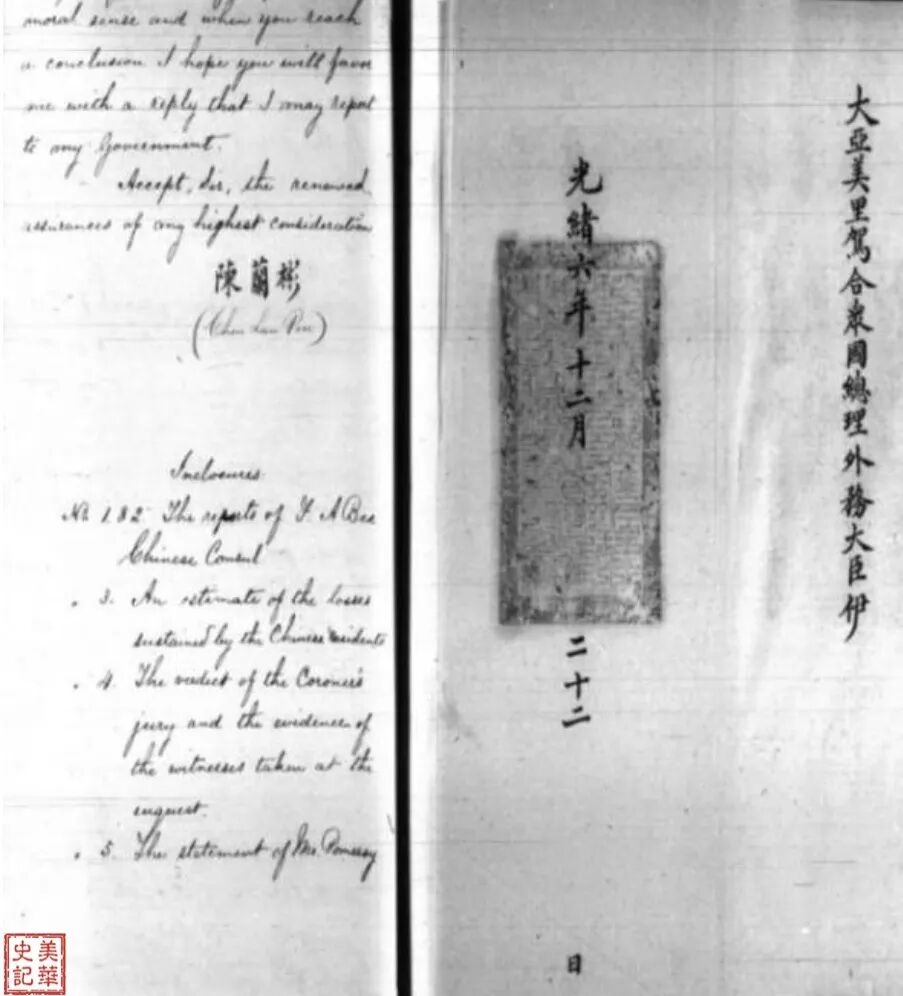 moral sense and when you reach
a conclusion I hope you will favor
me with a reply that I may report
to my Government.
Accept, Sir, the renewed
assurances of my highest consideration
陳蘭彬
(Chen Lan Pin)
Inclosures
No. 1 & 2. The reports of F. A. Bee
Chinese Consul
" 3. An estimate of the losses
sustained by the Chinese residents
" 4. The verdict of the Coroner's
jury and the evidence of
the witnesses taken at the
inquest.
" 5. The statement of Mr. Pomeroy
大亞美里駕合衆國總理外務大臣伊
光緒六年十二月二十二日
美華史記